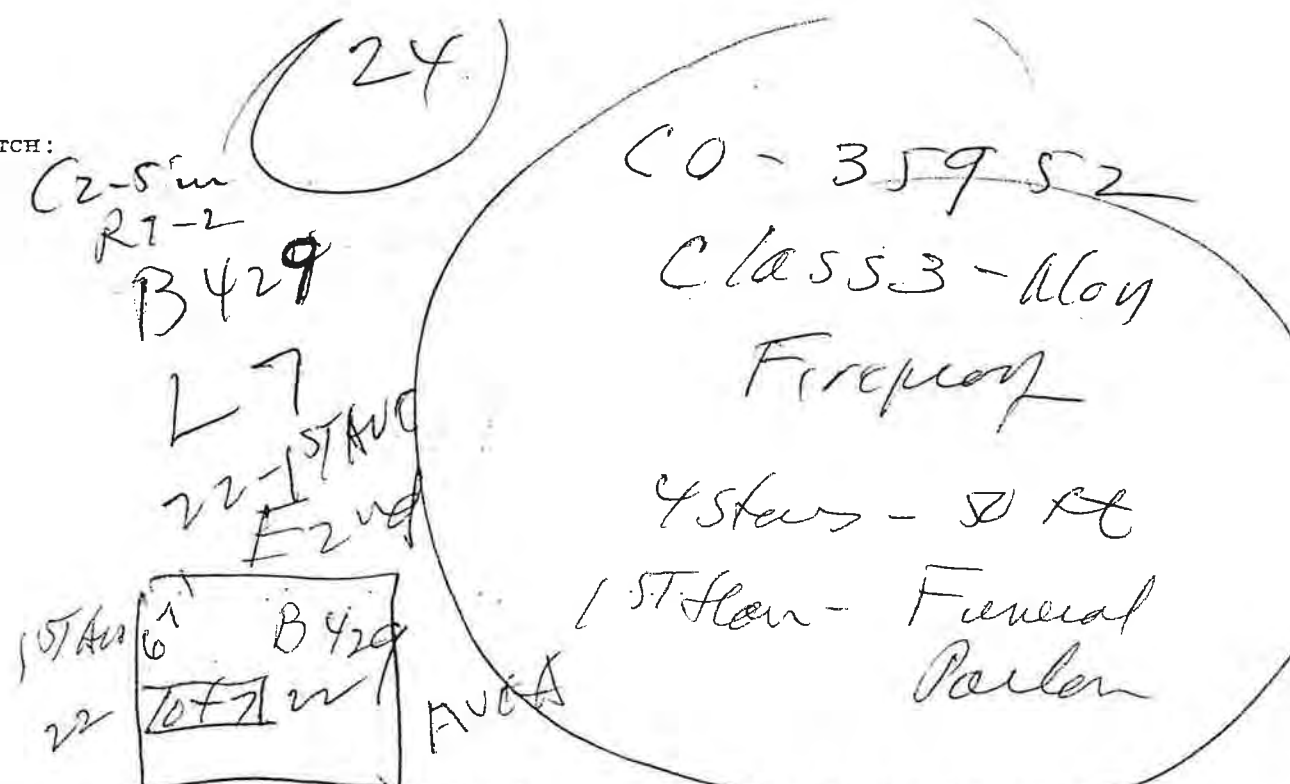 24
TCH:
C2-5
R7-2
B 429
L 7
22-1ST AVE
E 2nd
1ST Ave
6
B 429
22
LOT 7
22
AVE A
CO - 35952
Class 3 - Non
Fireproof
4 Stories - 50 ft
1ST floor - Funeral
Parlor